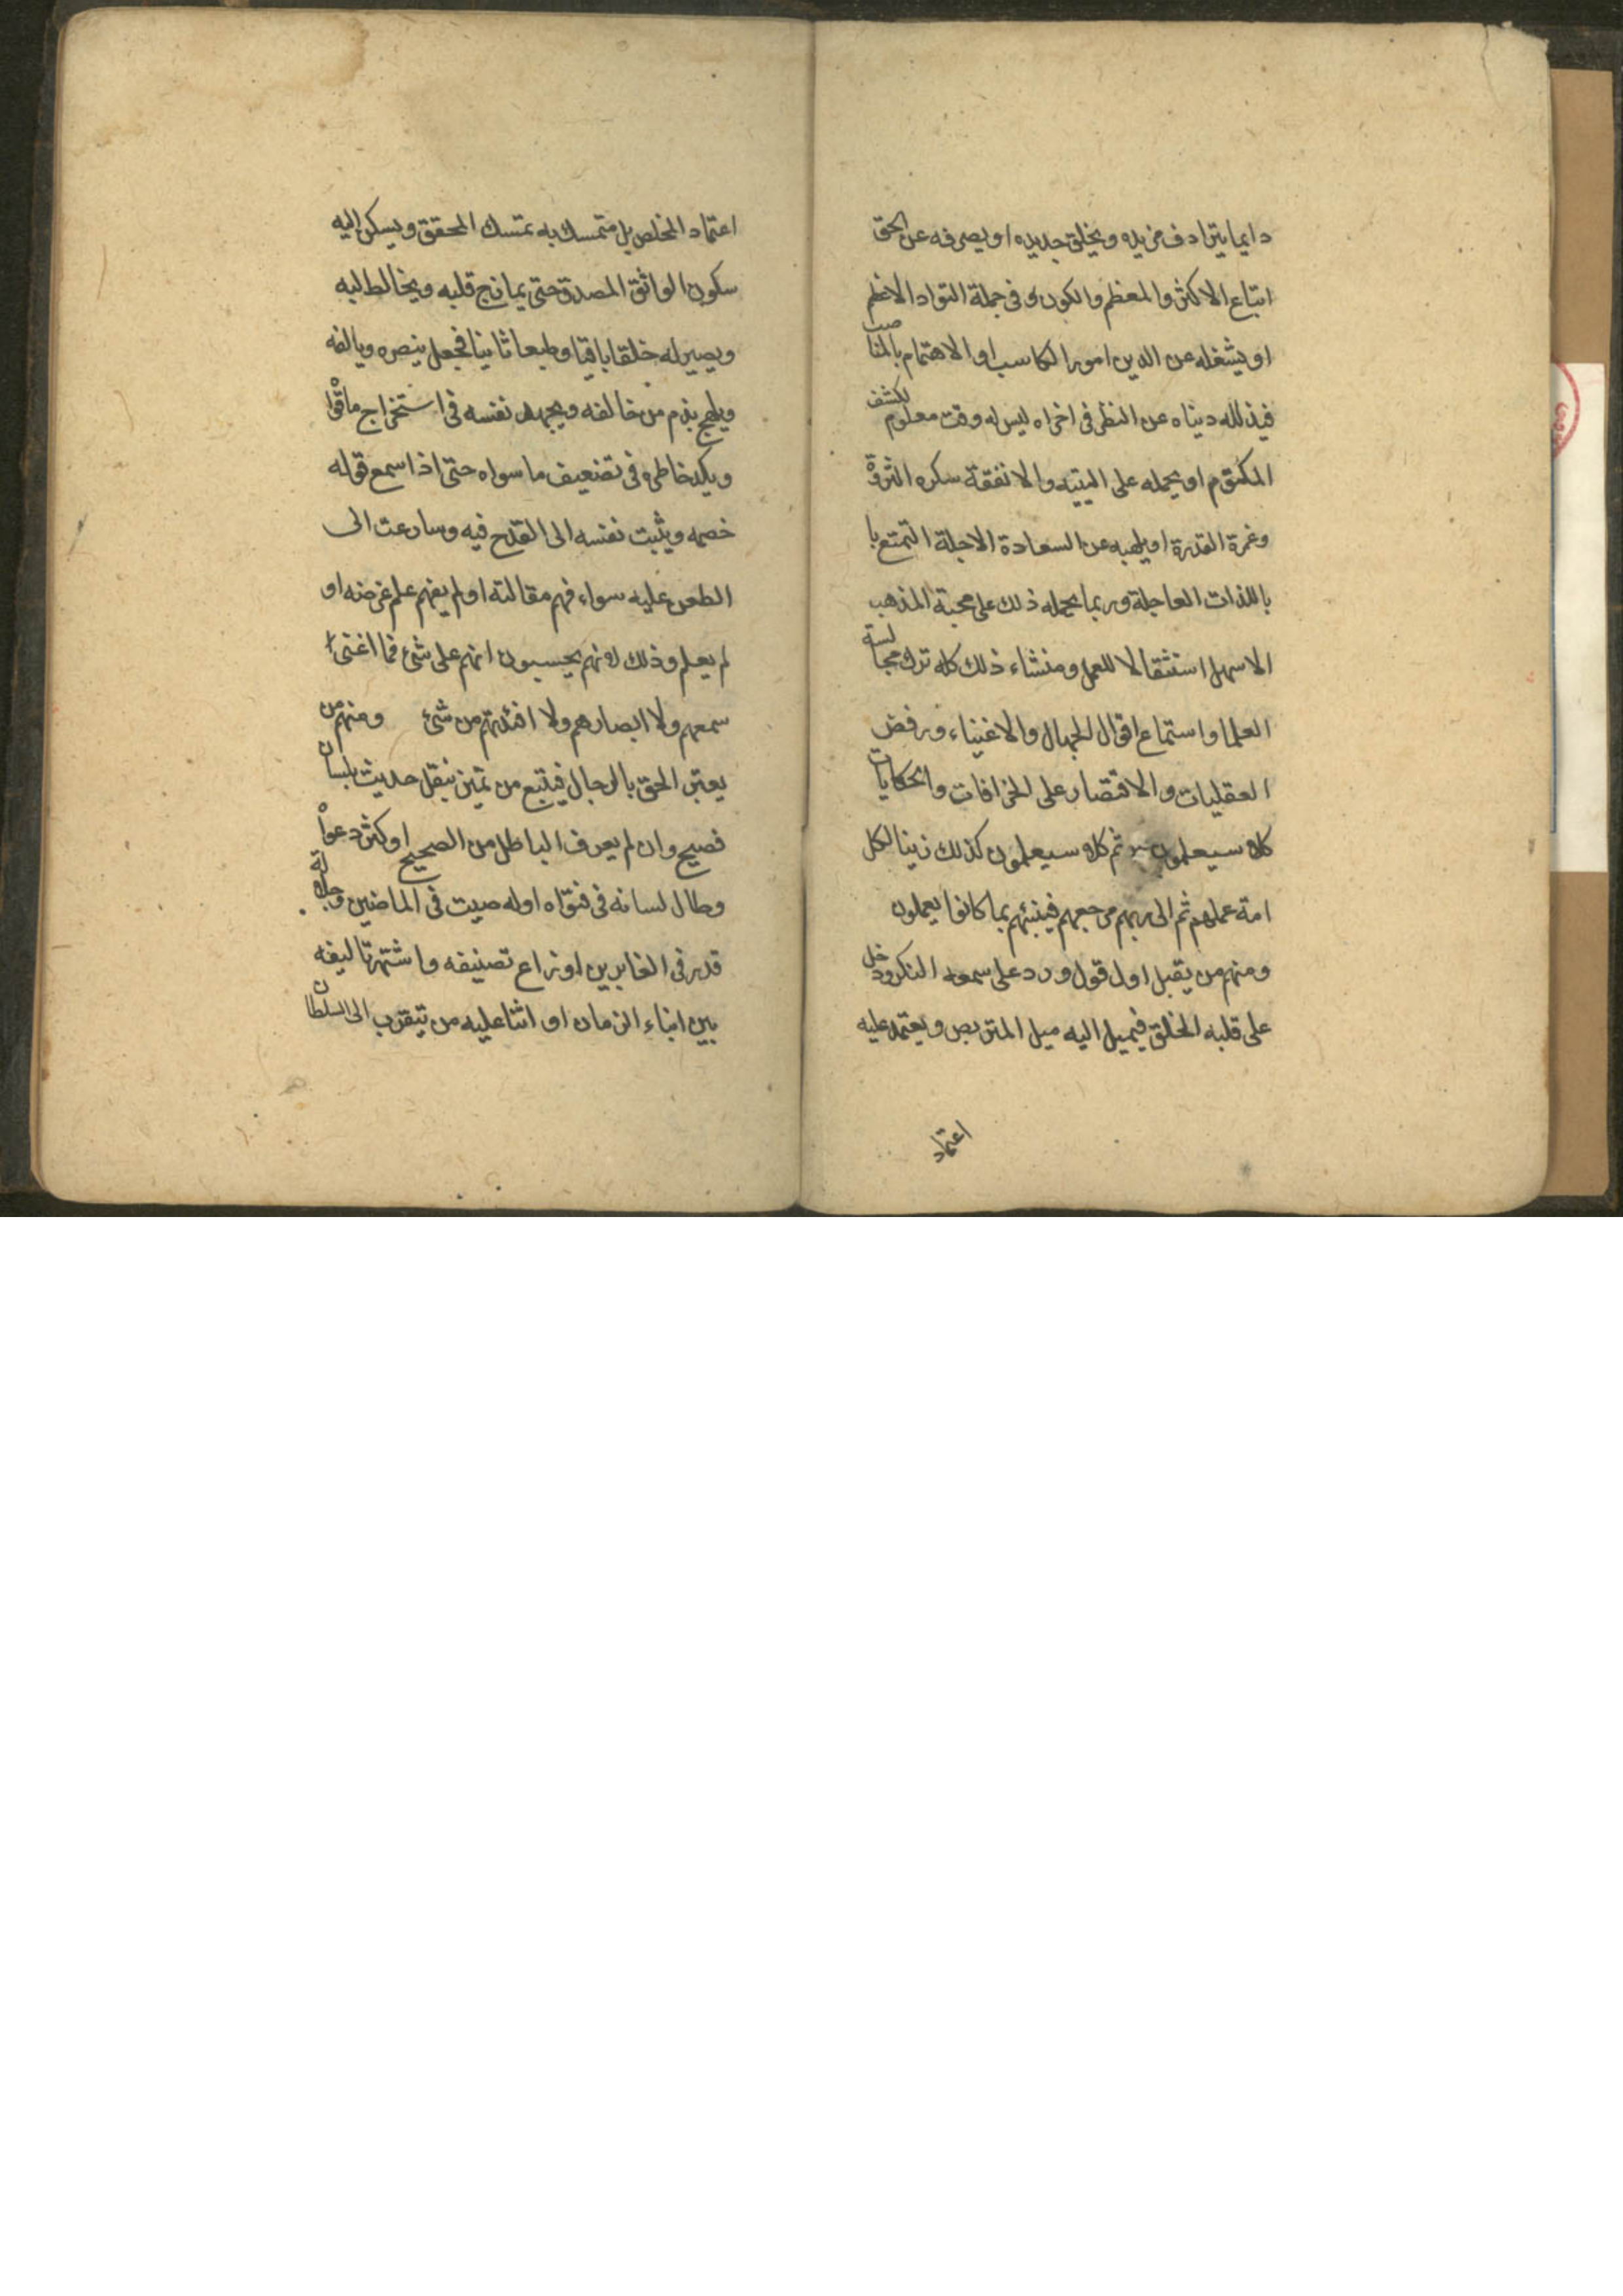 دايما يترادف مزيده ويخلق جديده او يصرفه عن الحق
اتباع الاكثر والمعظم والكون في جملة السواد الاعظم
او يشغله عن الدين امور المكاسب او الاهتمام بالمناصب
دنياه عن النظر في اخراه ليس له وقت معلوم لكشف
المكتوم او يحمله على التيه والانفقة سكره الثروة
وغمرة القدرة او يلهيه عن السعادة الاجلة التمتع با
باللذات العاجلة وربما يحمله ذلك على محبة المذهب
الاسهل استثقالا للعمل ومنشاء ذلك كله ترك مجالسة
العلما واستماع اقوال الجهال والاغنياء ورفض
العقليات والاقتصار على الخرافات والحكايات
كلا سيعلمون ثم كلا سيعلمون كذلك زينا لكل
امة عملهم ثم الى ربهم مرجعهم فينبئهم بما كانوا يعملون
ومنهم من يقبل اول قول ورد على سمعه البكر ودخل
على قلبه الخلق فيميل اليه ميل المتربص ويعتمد عليه
اعتماد
اعتماد المخلص بل متمسك به تمسك المحقق ويسكن اليه
سكون الواثق المصدق حتى يمازج قلبه ويخالط لبه
ويصير له خلقا باقيا وطبعا ثانيا فجعل ينصره ويالفه
ويلهج بذم من خالفه ويجهد نفسه في استخراج ما قواه
ويكد خاطره في تضعيف ما سواه حتى اذا سمع قوله
خصمه ويثبت نفسه الى القدح فيه وسارعت الى
الطعن عليه سواء فهم مقالته او لم يفهم علم غرضه او
لم يعلم وذلك لانهم يحسبون انهم على شئ فما اغنى
سمعهم ولا ابصارهم ولا افئدتهم من شئ ومنهم من
يعتبر الحق بالرجال فيتبع من تميز بنقل حديث بلسان
فصيح وان لم يعرف الباطل من الصحيح او كثر دعواه
وطال لسانه في فتواه اوله صيت في الماضين وجلالة
قدر في الغابرين او نزاع تصنيفه واشتهر تاليفه
بين ابناء الزمان او اثنا عليه من يتقرب الى السلطان